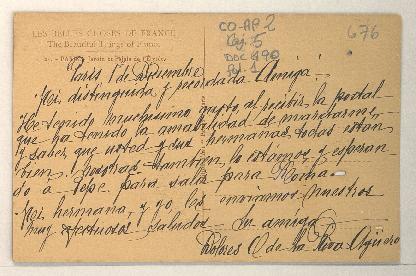 LES BELLES CHOSES DE FRANCE
The Beautiful Things of France
CO-AP 2
Caj. 5
Doc 490
Fol. 1
676
Paris 1 de Diciembre
Mi distinguida y recordada Amiga:
He tenido muchisimo gusto al recibir la postal
que ha tenido la amabilidad de mandarme,
y saber que usted y sus hermanas todas estan
bien. Nosotras tambien lo estamos y esperan
do a Pepe para salir para Roma.
Mi hermana, y yo les enviamos nuestros
muy afectuosos saludos. Su amiga
Dolores O de la Riva-Agüero